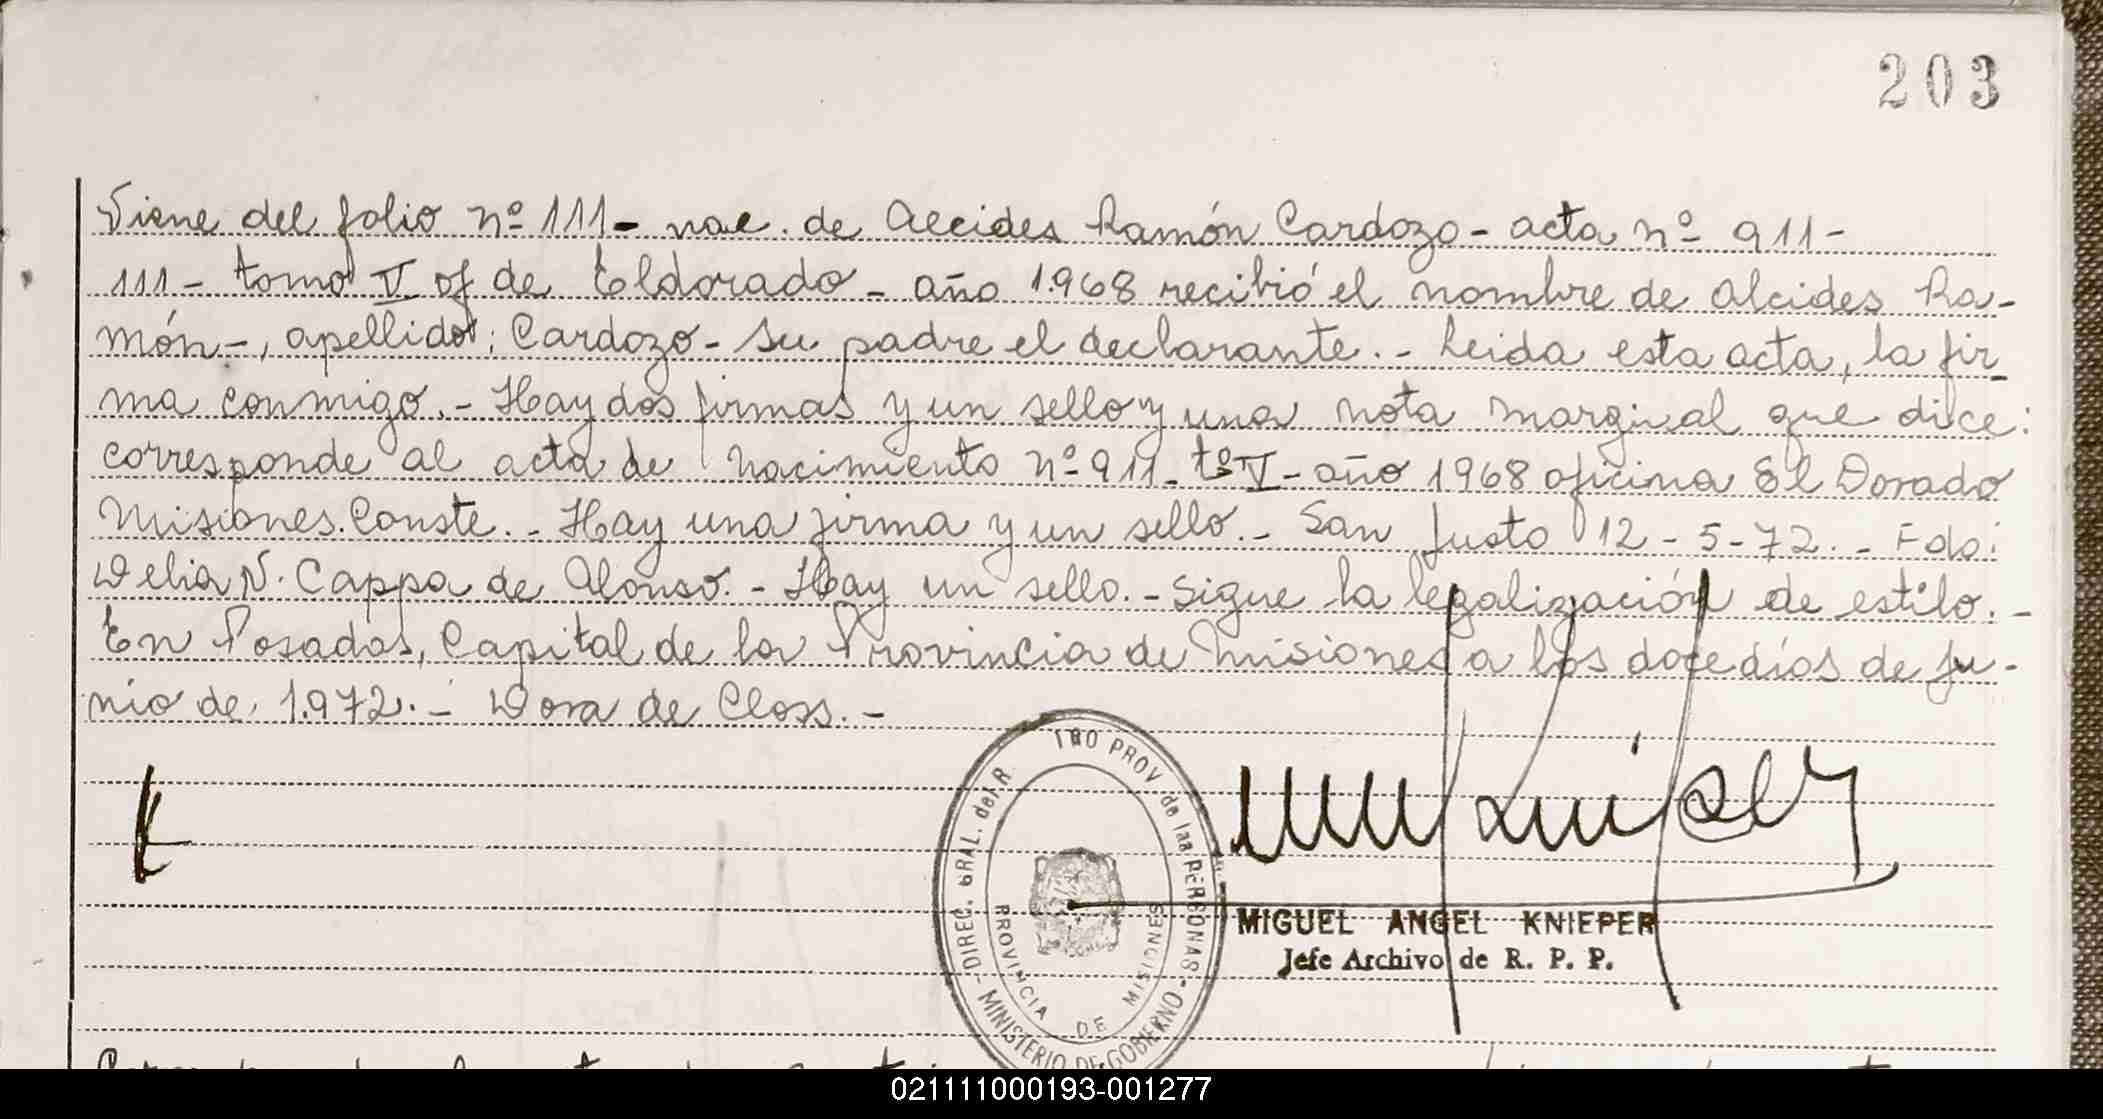 203
Viene del folio nº 111 - nac. de Alcides Ramón Cardozo - acta nº 911 -
111 - tomo V of de Eldorado - año 1.968 recibió el nombre de Alcides Ra-
món -, apellido: Cardozo - su padre el declarante. - Leida esta acta, la fir-
ma conmigo. - Hay dos firmas y un sello y una nota marginal que dice:
corresponde al acta de nacimiento nº 911 - tº V - año 1968 oficina El Dorado
Misiones. Conste. - Hay una firma y un sello. - San Justo 12 - 5 - 72. - Fdo:
Delia N. Cappa de Alonso. - Hay un sello. - Sigue la legalización de estilo. -
En Posadas, Capital de la Provincia de Misiones a los doce días de Ju-
nio de 1.972. - Dora de Closs. -
DIREC. GRAL. del R PROV de las PERSONAS
MINISTERIO DE GOBIERNO
PROVINCIA DE MISIONES
MIGUEL ANGEL KNIEPER
Jefe Archivo de R. P. P.
021111000193-001277